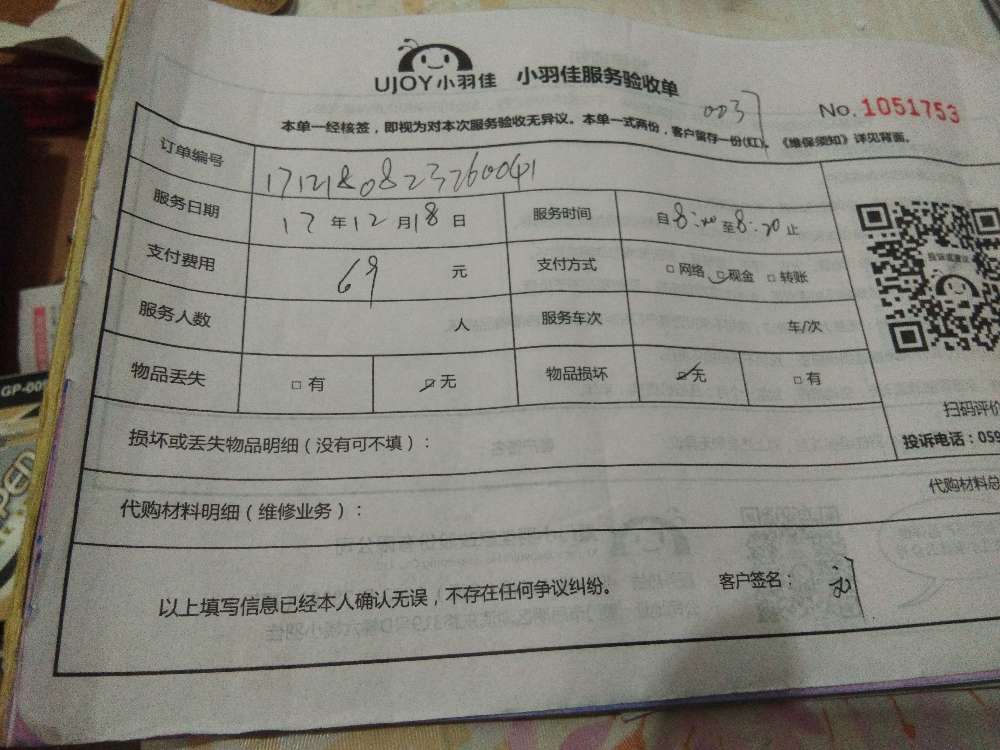 UJOY小羽佳 小羽佳服务验收单
0037
No.1051753
本单一经核签，即视为对本次服务验收无异议。本单一式两份，客户留存一份(红)。《维保须知》详见背面。
订单编号
服务日期 17年12月18日 服务时间 自8:20至8:20止
支付费用 69 元 支付方式 □网络 □现金 □转账
服务人数 人 服务车次 车/次
物品丢失 □有 □无 物品损坏 □无 □有
投诉或建议
扫码评价
投诉电话：059
损坏或丢失物品明细（没有可不填）：
代购材料总
代购材料明细（维修业务）：
以上填写信息已经本人确认无误，不存在任何争议纠纷。 客户签名：
GP-009